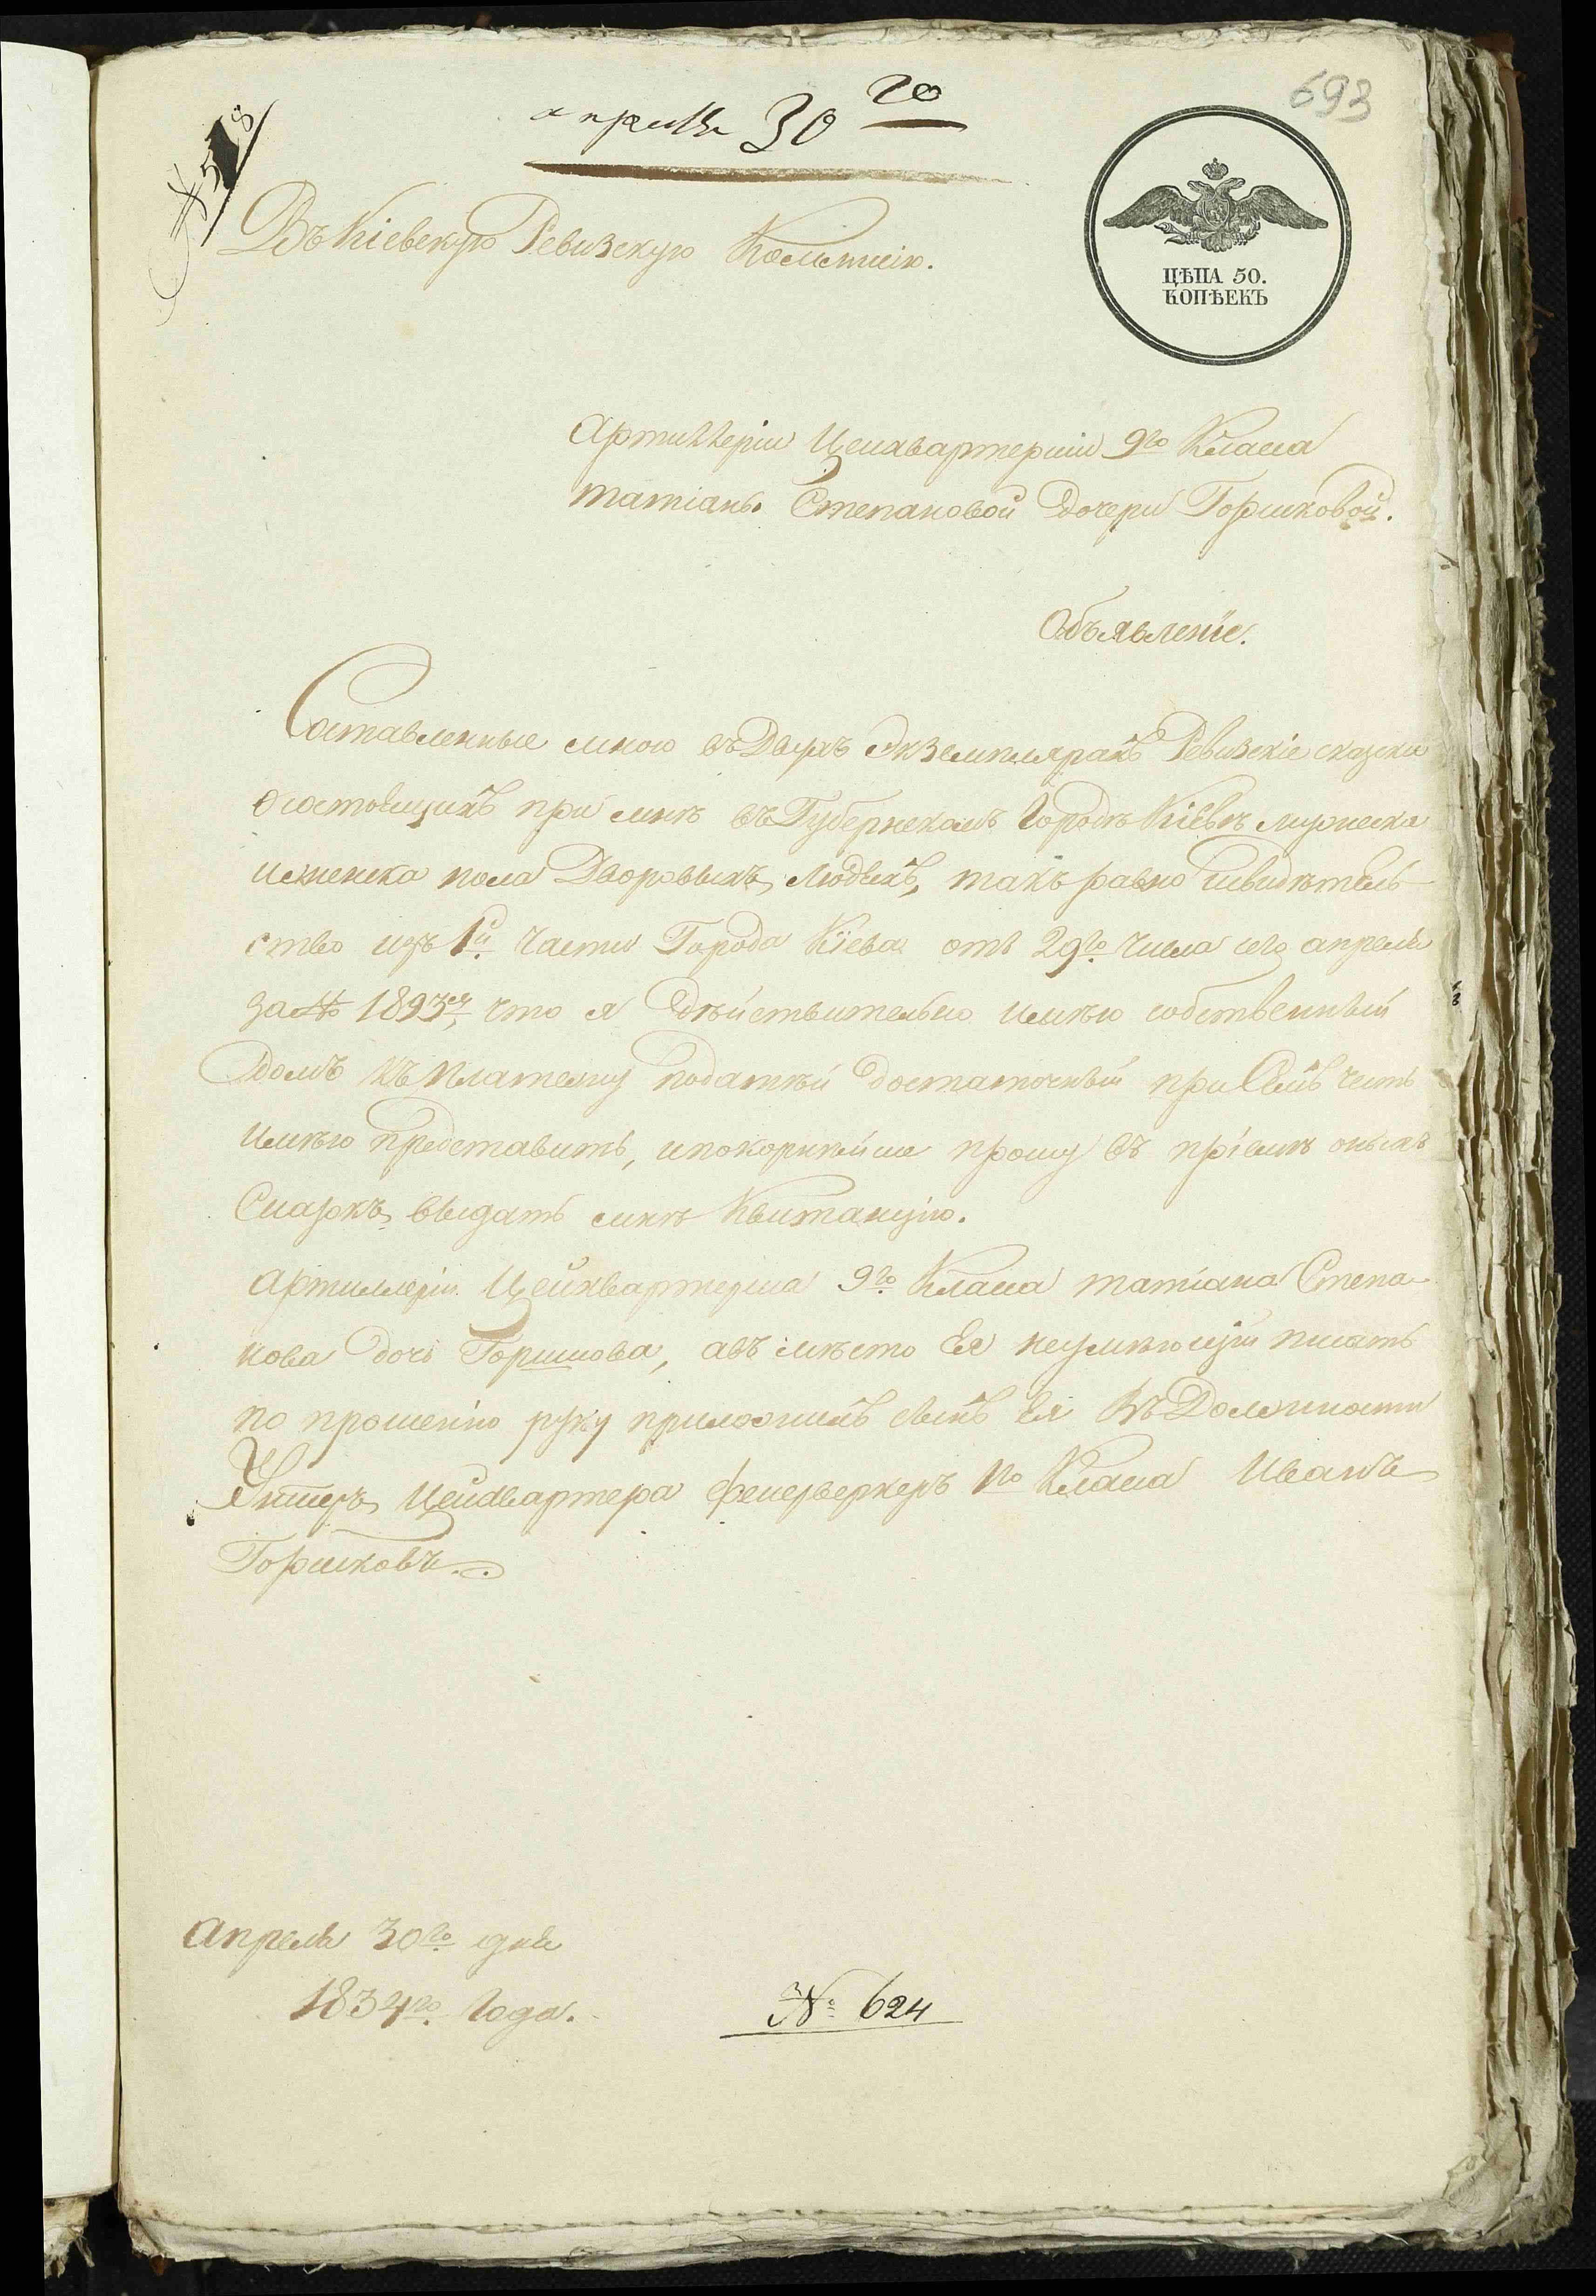 693
апреля 30го
Въ Кіевскую Ревизскую Коммисію.
ЦѢНА 50.
КОПѢЕКЪ
Артиллеріи Цейхвартерши 9го Класа
татіаны Степановой дочери Горшковой.
Объявленіе.
Составленные мною въ Двухъ Экземплярахъ Ревизскіе сказки
о состоящихъ при мнѣ въ Губернскомъ Городѣ Кіевѣ мужеска
и женска пола Дворовыхъ людяхъ, такъ равно и свидѣтель
ство изъ 1й части Города Кіева отъ 29го числа сего апреля
за № 1893м, что я дѣйствительно имѣю собственный
домъ къ платежу податей достаточный при Семъ честь
имѣю представить, и покорнѣйше прошу въ пріемѣ оныхъ
Сказокъ выдать мнѣ Квитанцію.
Артиллеріи Цейхвартерша 9го Класа татіана Степа
нова дочь Горшкова, а въ мѣсто Ея неумѣющей писать
по прошенію руку приложилъ сынъ Ея Въ Должности
Унтеръ Цейхвартера фейерверкеръ 1го Класа Иванъ
Горшковъ.
Апреля 30го дня
1834го Года.
№ 624